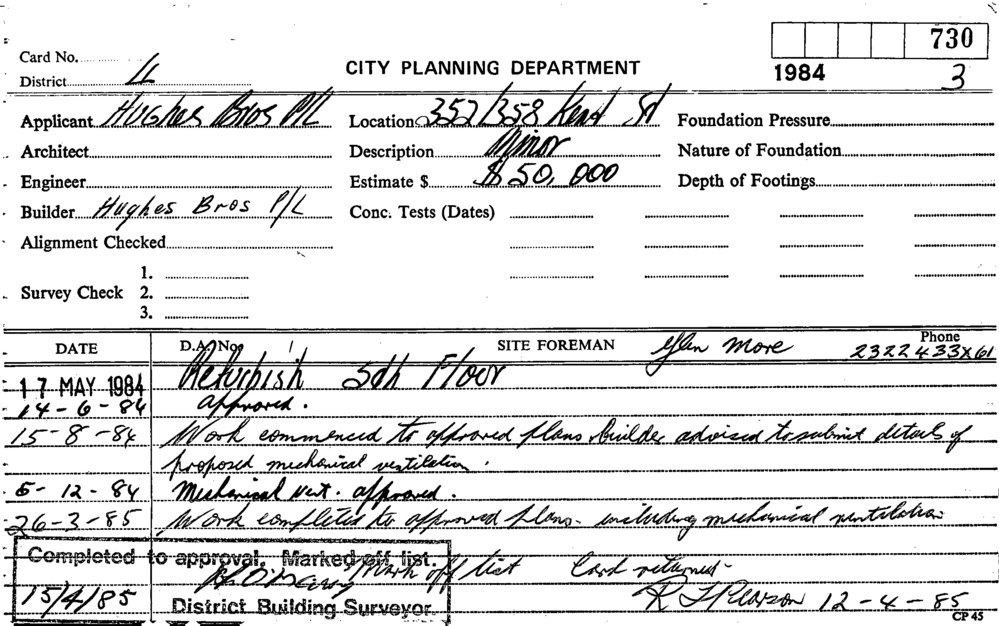 730
Card No.
CITY PLANNING DEPARTMENT
1984 3
District 4
Applicant Hughes Bros P/L Location 352/358 Kent St Foundation Pressure
Architect Description Minor Nature of Foundation
Engineer Estimate $ $50,000 Depth of Footings
Builder Hughes Bros P/L Conc. Tests (Dates)
Alignment Checked
1.
Survey Check 2.
3.
DATE D.A. Nos SITE FOREMAN Glen More Phone 2322433X61
17 MAY 1984 Refurbish 5th Floor
14-6-84 approved.
15-8-84 Work commenced to approved plans builder advised to submit details of
proposed mechanical ventilation.
5-12-84 Mechanical vent. approved.
26-3-85 Work completed to approved plans - including mechanical ventilation
Completed to approval. Marked off list.
Mark off list Card returned-
15/4/85 District Building Surveyor. R J Pearson 12-4-85
CP 45